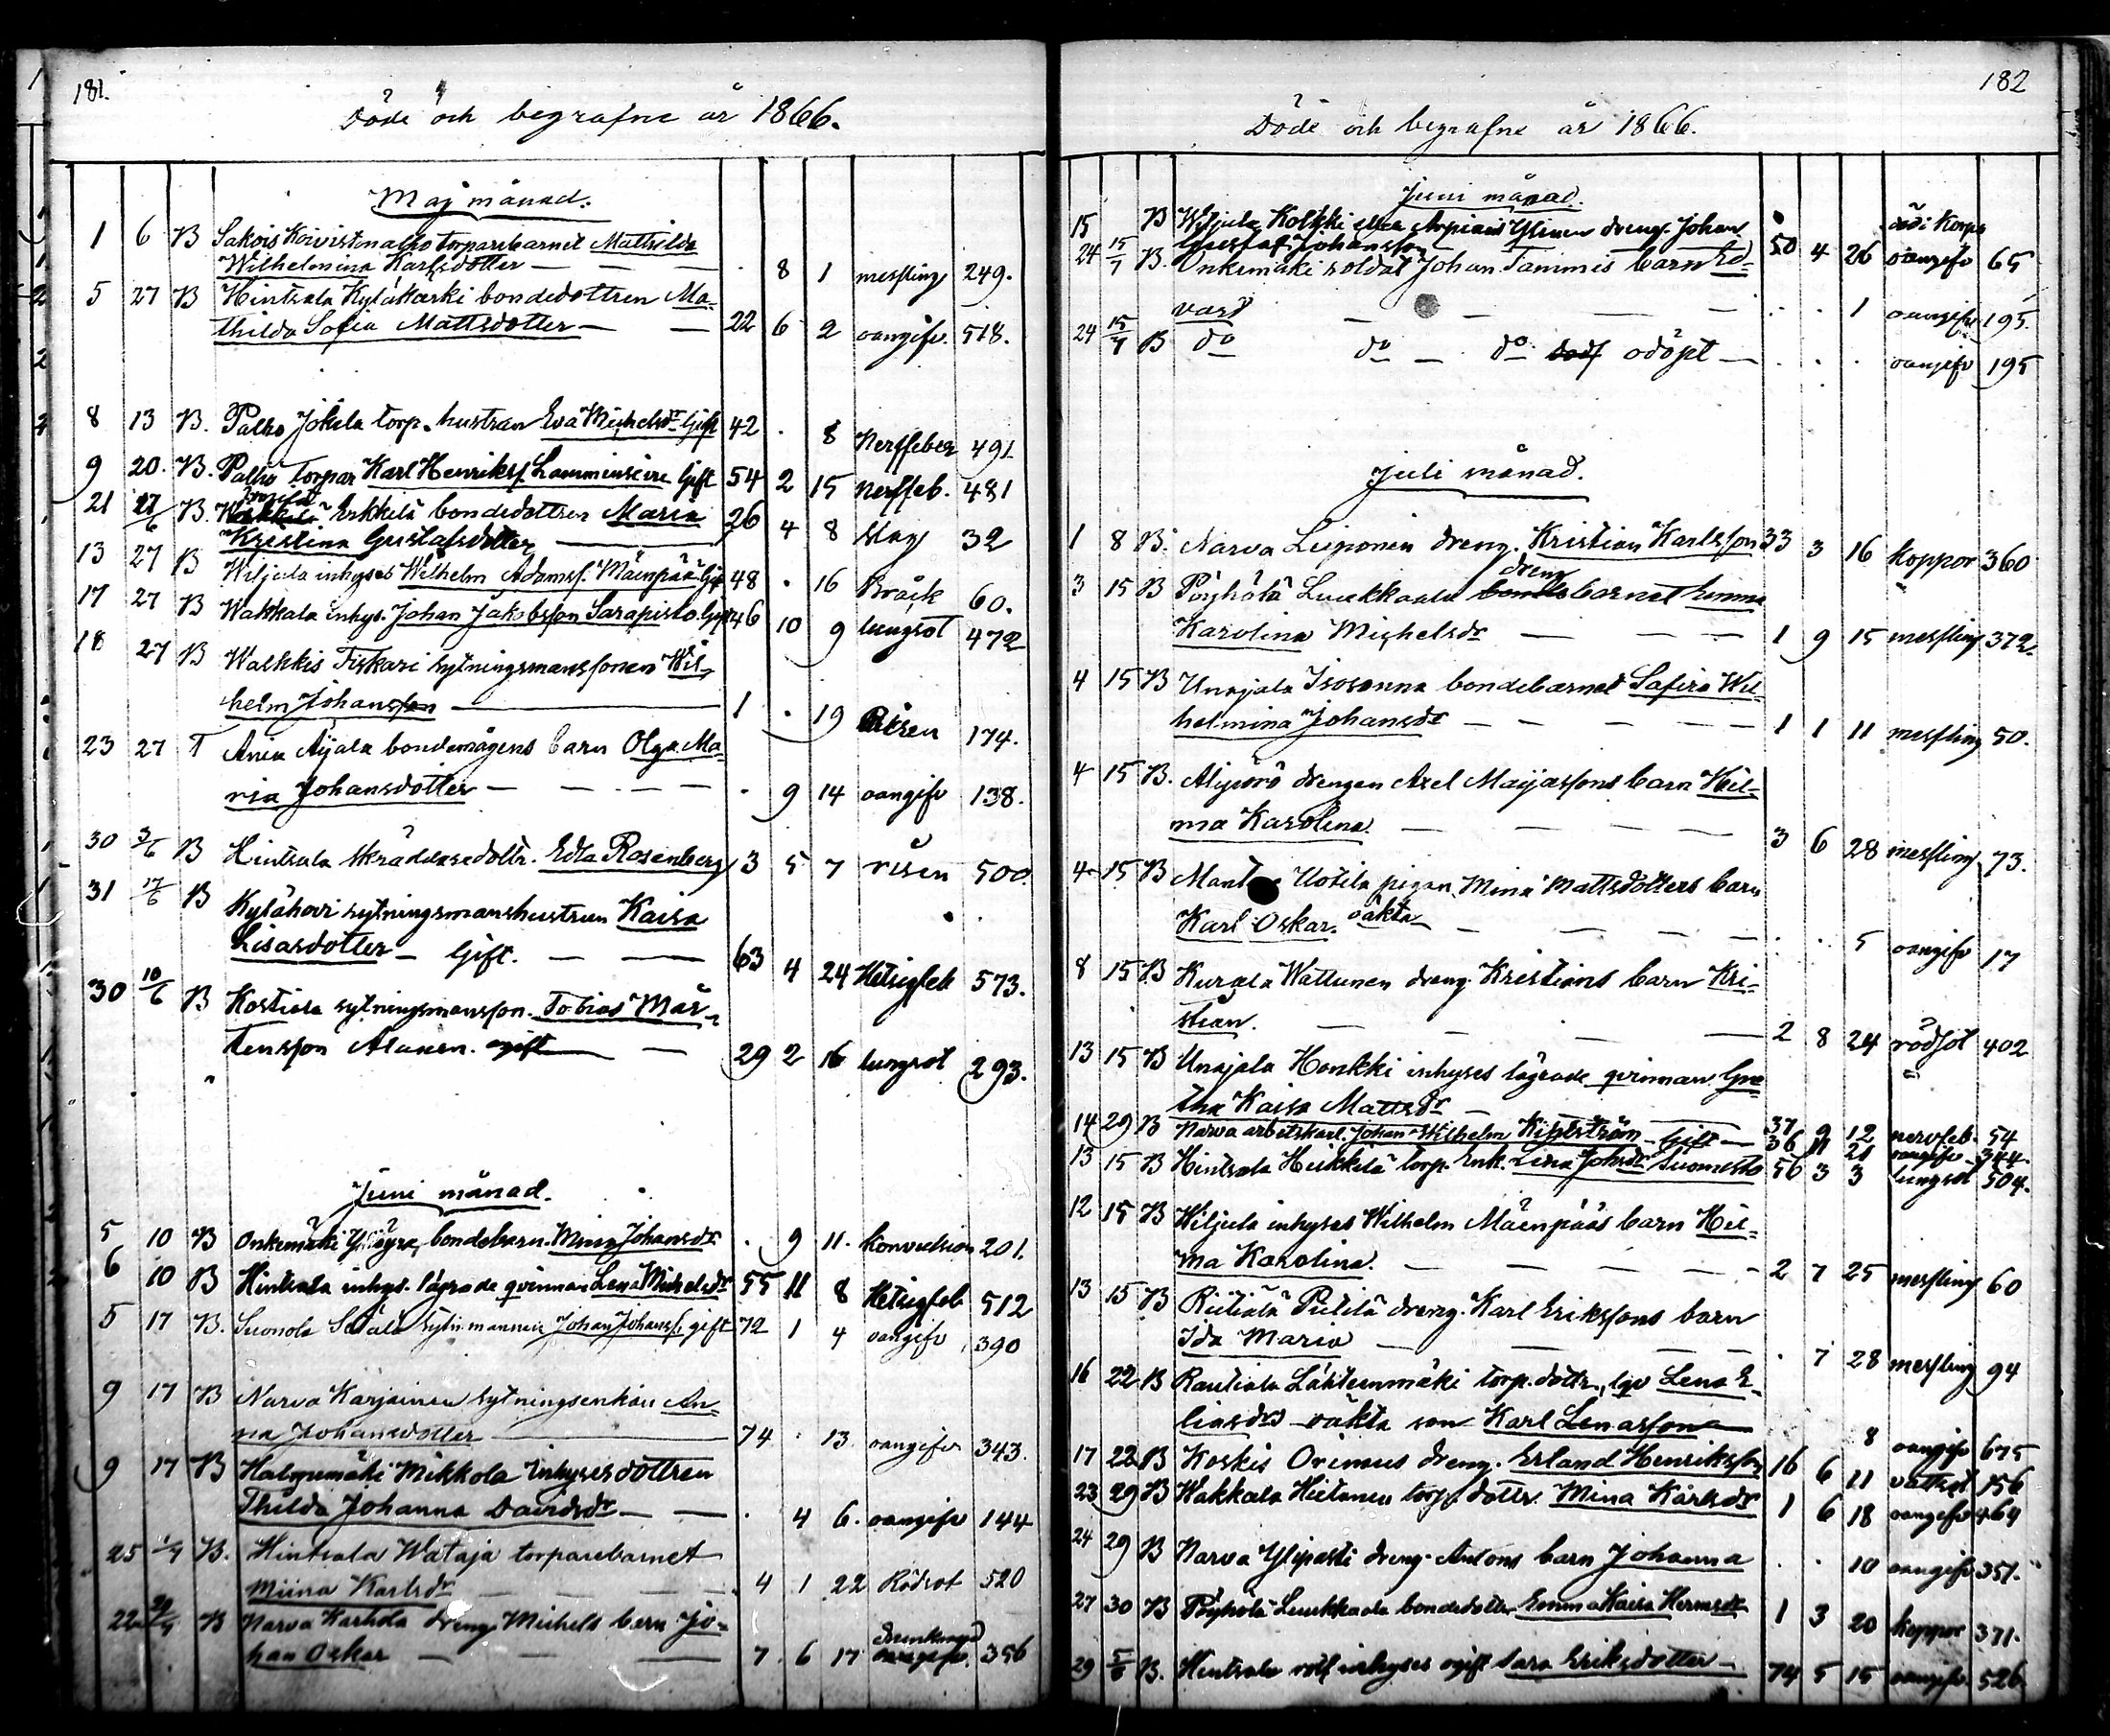 181.
Döde och begrafne år 1866.
Maj månad.
1 6 B Sakois Koivistonalho torparebarnet Mathilda
Wilhelmina Karlsdotter — — — . 8 1 messling 249.
5 27 B Hintsala Kyläkarki bondedottren Ma-
thilda Sofia Mattsdotter — — 22 6 2 oangifv. 518.
8 13 B. Palho Jokela torp. hustrun Eva Michelsdr Gift 42 . 8 Nerffeber 491
9 20. B. Palho torpar Karl Henriksf. Gift 54 2 15 nerffeb. 481
21 27/6 B. Erkkilä bondedottren Maria 26 4 8 Slag 32
Kristina Gustafsdotter —
13 27 B Wiljula inhyses Wilhelm Adamsf. Mäenpää Gift 48 . 16 Bråck 60.
17 27 B Wakkala inhys. Johan Jakobsson Sarapisto Gift 46 10 9 lungsot 472
18 27 B Walkkis Tiskari sytningsmanssonen Wil-
helm Johansson — 1 . 19 174.
23 27 T Äijälä bondemågens barn Olga Ma-
ria Johansdotter — — — — . 9 14 oangifv 138.
30 3/6 B Hintsala skräddaredottr. Edla Rosenberg 3 5 7 risen 500.
31 17/6 B Kylähovi sytningsmanshustrun Kaisa
Lisasdotter — Gift. — — 63 4 24 Hetsigfeb 573.
30 10/6 B Kostiala sytningsmansson. Tobias Mår-
tensson Alanen. ogift — 29 2 16 lungsot 293.
Juni månad.
5 10 B Onkemäki bondebarn. Mina Johansdr . 9 11. konvulsion 201.
6 10 B Hintsala inhys. lägrade qvinnan Lena Michelsdr 55 11 8 Hetsigfeb 512
5 17 B. Suonola Sätälä sytn. mannen Johan Johansf. gift 72 1 4 oangifv 390
9 17 B Narva Karjainen sytningsenkan An-
na Johansdotter — 74 . 13 oangifv 343.
9 17 B Halpumäki Mikkola Inhysesdottren
Thilda Johanna Davidsdr — — . 4 6. oangifv 144
25 1/7 B. Hintsala Wataja torparebarnet
Miina Karlsdr — — — 4 1 22 Rödsot 520
22 B Narva Karhola dreng Michels barn Jo-
han Oskar — — — 7 6 17 356
182
Döde och begrafne år 1866.
Juni månad.
15 B Wiljula Kolkki dreng. Johan
Gustaf Johansson 50 4 26 oangifv 65
24 15/7 B. Onkemäki soldat Johan Tammis barn Ed-
vard — — — — . . 1 oangifv 195.
24 15/7 B do do — do odöpt — . . . oangifv 195
Juli månad.
1 8 B. Narva Leiponen dreng. Kristian Karlsson 33 3 16 koppor 360
dreng
3 15 B Pöyhölä Luukkaala barnet Emma
Karolina Michelsdr — — — 1 9 15 messling 372.
4 15 B Unajala Isosanna bondebarnet Safira Wil-
helmina Johansdr — — — — 1 1 11 messling 50.
4 15 B. Alisjoro drengen Axel Maijassons barn Hil-
ma Karolina. — — — — 3 6 28 messling 73.
4 15 B Uotila pigan Mina Mattsdotters barn
Karl Oskar. oäkta — — — — . . 5 oangifv 17
8 15 B Kurala Wattunen dreng. Kristians barn Kri-
stian. — — — 2 8 24 rödsot 402
13 15 B Unajala Honkki inhyses lägrade qvinnan Gre-
tha Kaisa Mattsdr — 37 9 12 nervfeb. 54
14 29 B Narva arbetskarl. Johan Wilhelm — Gift — 36 11 21 oangifv. 344.
13 15 B Hintsala Heikkilä torp. Enk. Lena Johsdr Suomesto 56 3 3 lungsot 504.
12 15 B Wiljula inhyses Wilhelm Mäenpääs barn Hil-
ma Karolina. — — — — 2 7 25 messling 60
13 15 B Riitiälä Pietilä dreng. Karl Erikssons barn
Ida Maria — — — — . 7 28 messling 94
16 22 B Rautiala Lähteenmäki torp. dottr. Lena E-
liasdrs oäkta son Karl Lenasson 8 oangifv 675
17 22 B Koskis Orimus dreng. Erland Henriksson 16 6 11 vattsot 156
23 29 B Wakkala Hietanen torp. dottr. Mina Karlsdr 1 6 18 oangifv 469
24 29 B Narva Ylipasti dreng. Antons barn Johanna . . 10 oangifv 351.
27 30 B Pöyhölä Luukkaala bondedottr. Emma Kaisa Hermsdr 1 3 20 koppor 371.
29 5/8 B. Hintsala inhyses ogift Sara Eriksdotter — 74 5 15 oangifv. 526